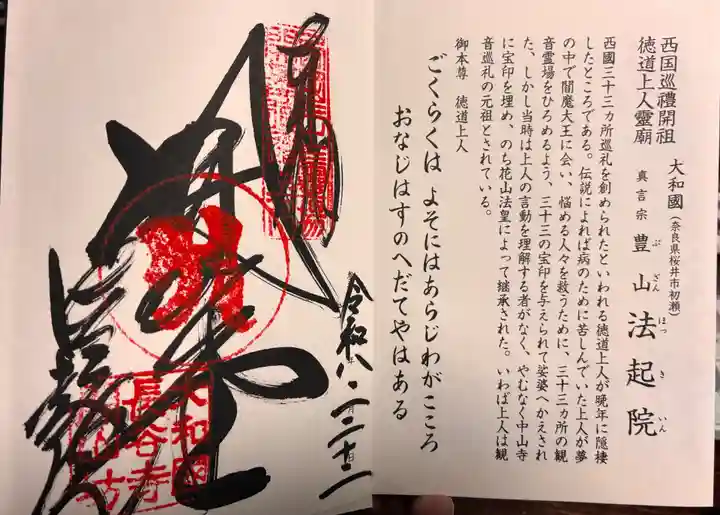 西国巡禮開祖
徳道上人靈廟
大和國(奈良県桜井市初瀬)
真言宗 豊山 法起院
ぶ ざん ほっ き いん
西國三十三ヵ所巡礼を創められたといわれる徳道上人が晩年に隠棲
したところである。伝説によれば病のために苦しんでいた上人が夢
の中で閻魔大王に会い、悩める人々を救うために、三十三ヵ所の観
音霊場をひろめるよう、三十三の宝印を与えられて娑婆へかえされ
た、しかし当時は上人の言動を理解する者がなく、やむなく中山寺
に宝印を埋め、のち花山法皇によって継承された。いわば上人は観
音巡礼の元祖とされている。
御本尊 徳道上人
ごくらくは よそにはあらじわがこころ
おなじはすのへだてやはある
令和八・二・二十二
大和國
長谷寺